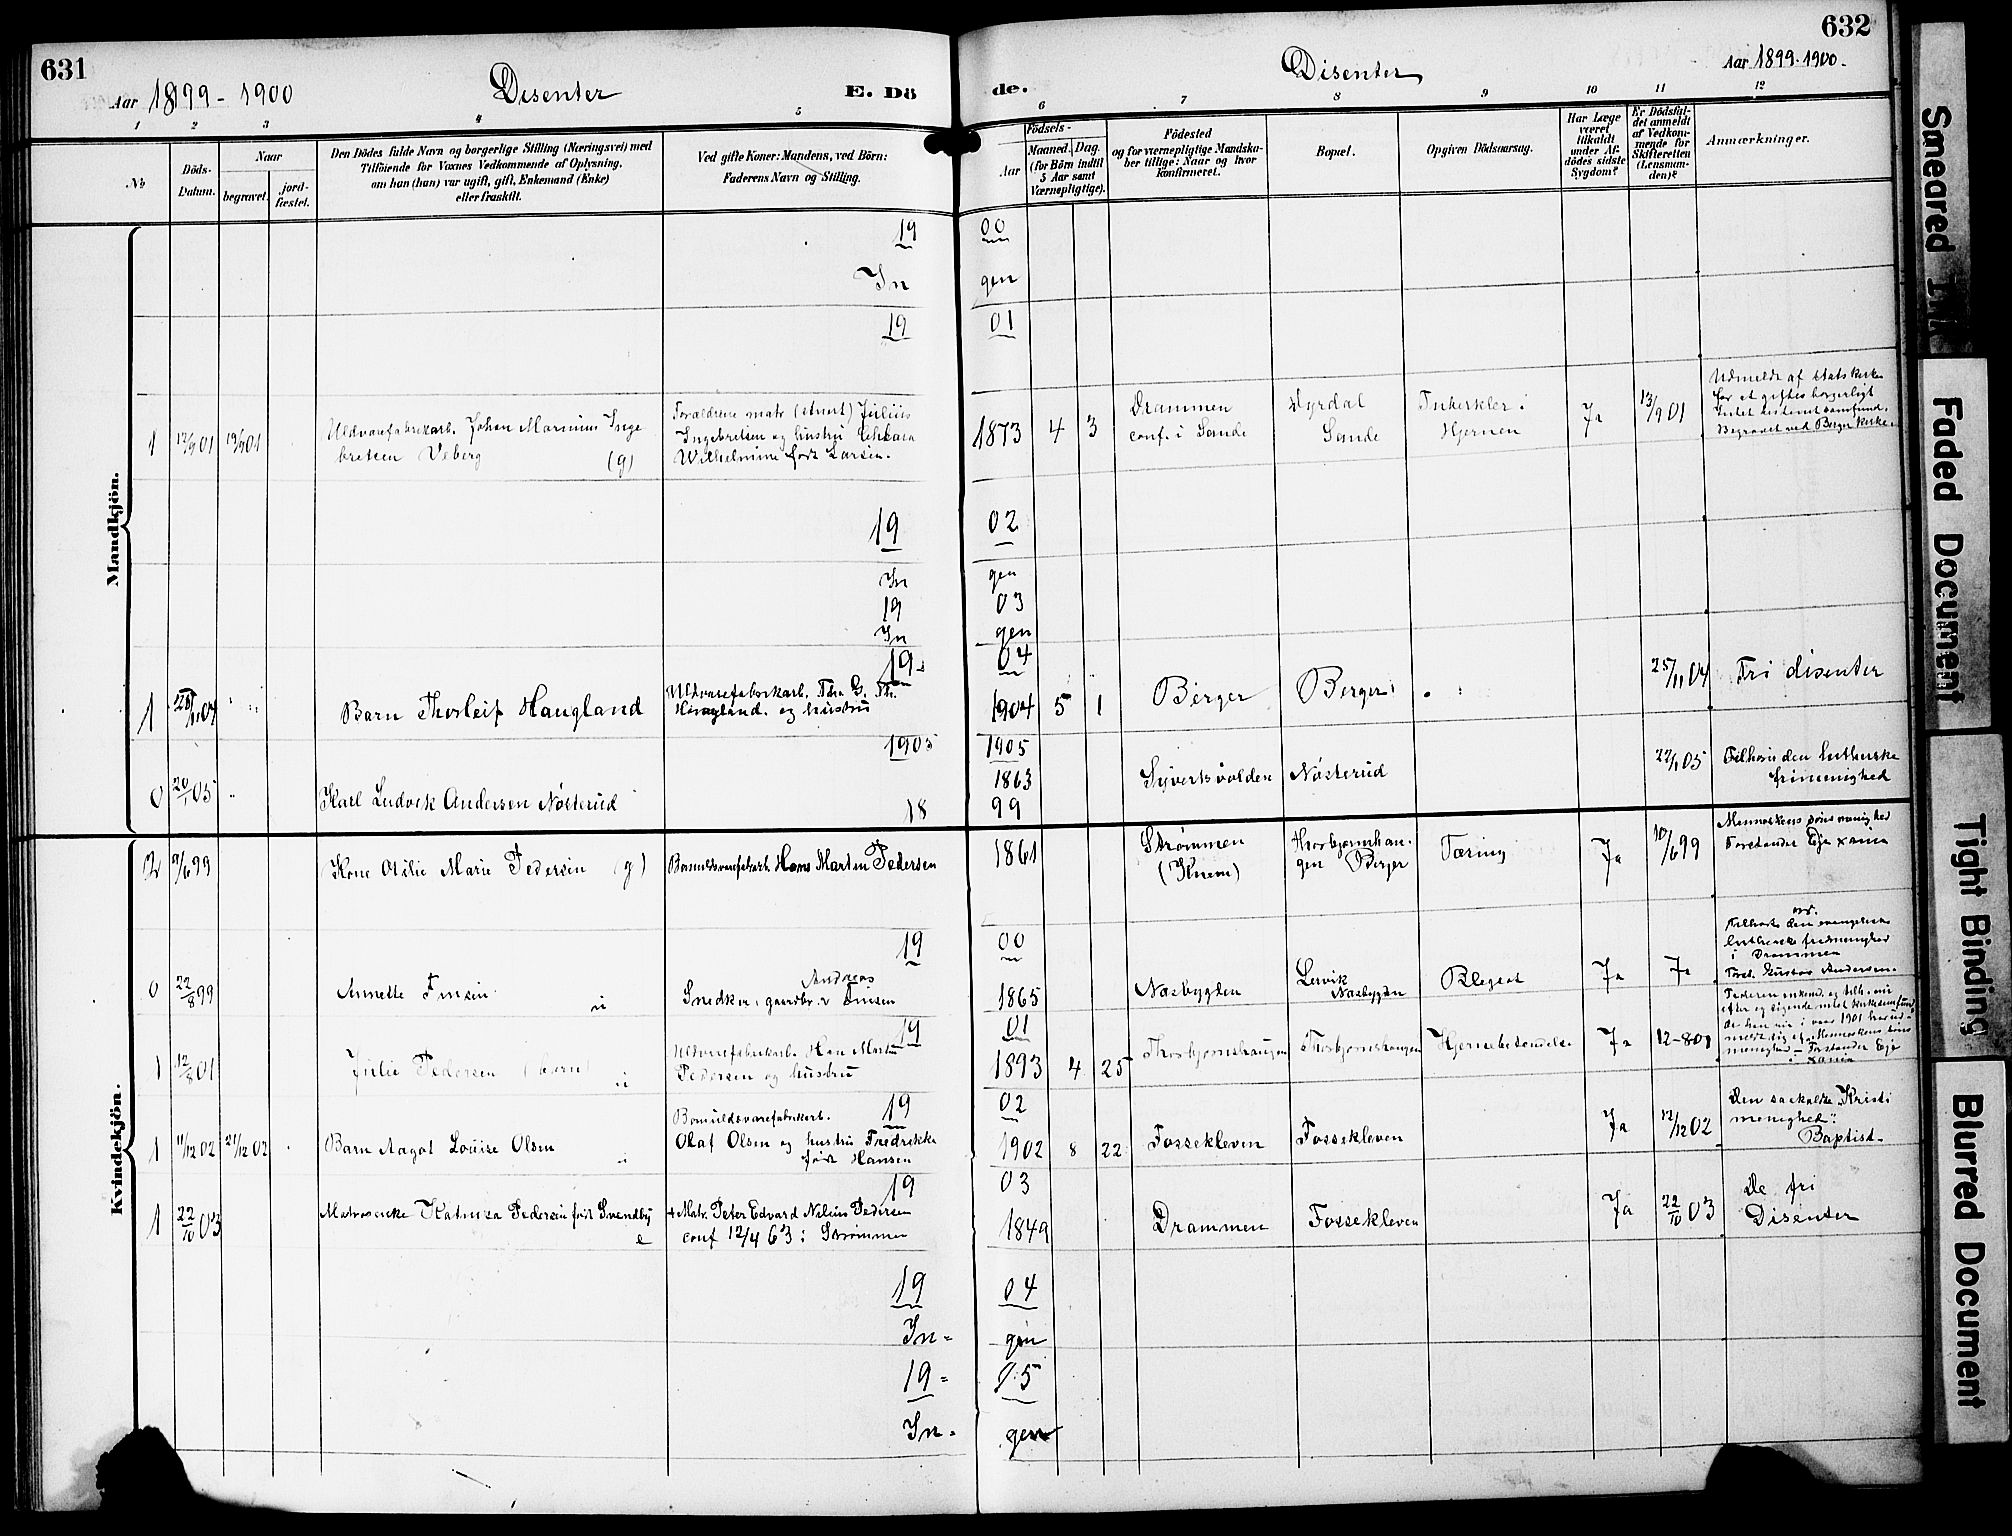 631
Aar 1899-1900
Disenter
E. Dö
1 2 3 4 5
№
Döds-
Datum.
Naar
begravet.
jord-
fæstet.
Den Dödes fulde Navn og borgerlige Stilling (Næringsvei) med
Tilföiende for Voxnes Vedkommende af Oplysning,
om han (hun) var ugift, gift, Enkemand (Enke)
eller fraskilt.
Ved gifte Koner: Mandens, ved Börn:
Faderens Navn og Stilling.
632
de.
Disenter
Aar 1899-1900.
6 7 8 9 10 11 12
Födsels-
Aar
Maaned. Dag.
(for Börn indtil
5 Aar samt
Værnepligtige).
Födested
og for værnepligtige Mandska-
ber tillige: Naar og hvor
konfirmeret.
Bopæl.
Opgiven Dödsaarsag.
Har Læge
været
tilkaldt
under Af-
dödes sidste
Sygdom?
Er Dödsfal-
det anmeldt
af Vedkom-
mende for
Skifteretten
(Lensman-
den)?
Anmærkninger.
Mandkjön.
19 00
In gen
19 01
1 12/9 01 19/9 01
Uldvarefabrikarb. Johan Marinius Inge
bretsen Veberg (g)
Forældrene matr (slvert) Julius
Ingebretsen og hustru
Wilhelmine født Larsen.
1873 4 3
Drammen
conf. i Sande
Dyrdal
Sande
Tuberkler i
Hjernen
Ja
13/9 01
Udmeldt af Statskirken
for at giftes borgerligt
Intet bestemt samfund.
Begravet ved Berger kirke
19 02
In gen
19 03
In gen
19 04
1 25/11 04
Barn Thorleif Haugland
Uldvarefabrikarb.
Haugland og hustru
1904 5 1
Berger
Berger
25/11 04
Fri disenter
1905 1905
0 20/1 05
Karl Ludvik Andersen Nøsterud
1863
Syvertsvolden
Nøsterud
22/1 05
Tilhører den lutherske
frimenighed
18 99
Kvindekjön.
2 9/6 99
Kone Otilie Marie Pedersen (g)
Bomuldsvarefabarb. Hans Martin Pedersen
1861
Strømmen
(Hurum)
Thorbjørnshau-
gen Berger
Tæring
Ja
10/6 99
Menneskens søns menighed
Forstander Eje xania
19 00
0 22/8 99
Annette Emsen
u
Snedker, gaardbr. Andreas Emsen
1865
Næsbygden
Lervik
Næsbygden
Blegsot
Ja
Ja
Tilhørte den evangelisk
lutherske frimenighed
i Drammen
Forst. Gustav Andersen.
19 01
1 12/8 01
Julie Pedersen (barn)
u
Uldvarefabrikarb. Hans Martin
Pedersen og hustru
1893 4 25
Thorbjørnshaugen
Thorbjørnshaugen
Hjernebetændelse
Ja
12-8 01
menighed - Forstander Eje
i xania
19 02
1 11/12 02 21/12 02
Barn Aagot Louise Olsen
u
Bomuldsvarefabrikarb.
Olaf Olsen og hustru Fredrikke
født Hansen
1902 8 22
Fossekleven
Fossekleven
Ja
12/12 02
Den saakaldte "Kristi
menighed":
Baptist-
19 03
1 22/10 03
Matrosenke Katrisa Pedersen født Svendby
e
+ Matr. Peter Edvard Nilius Pedersen
conf 12/4 63 i Strømmen
1849
Drammen
Fossekleven
Ja
22/10 03
De fri
Disenter
19 04
In- gen
19- 05
In- gen
Smeared Ink
Faded Document
Tight Binding
Blurred Document